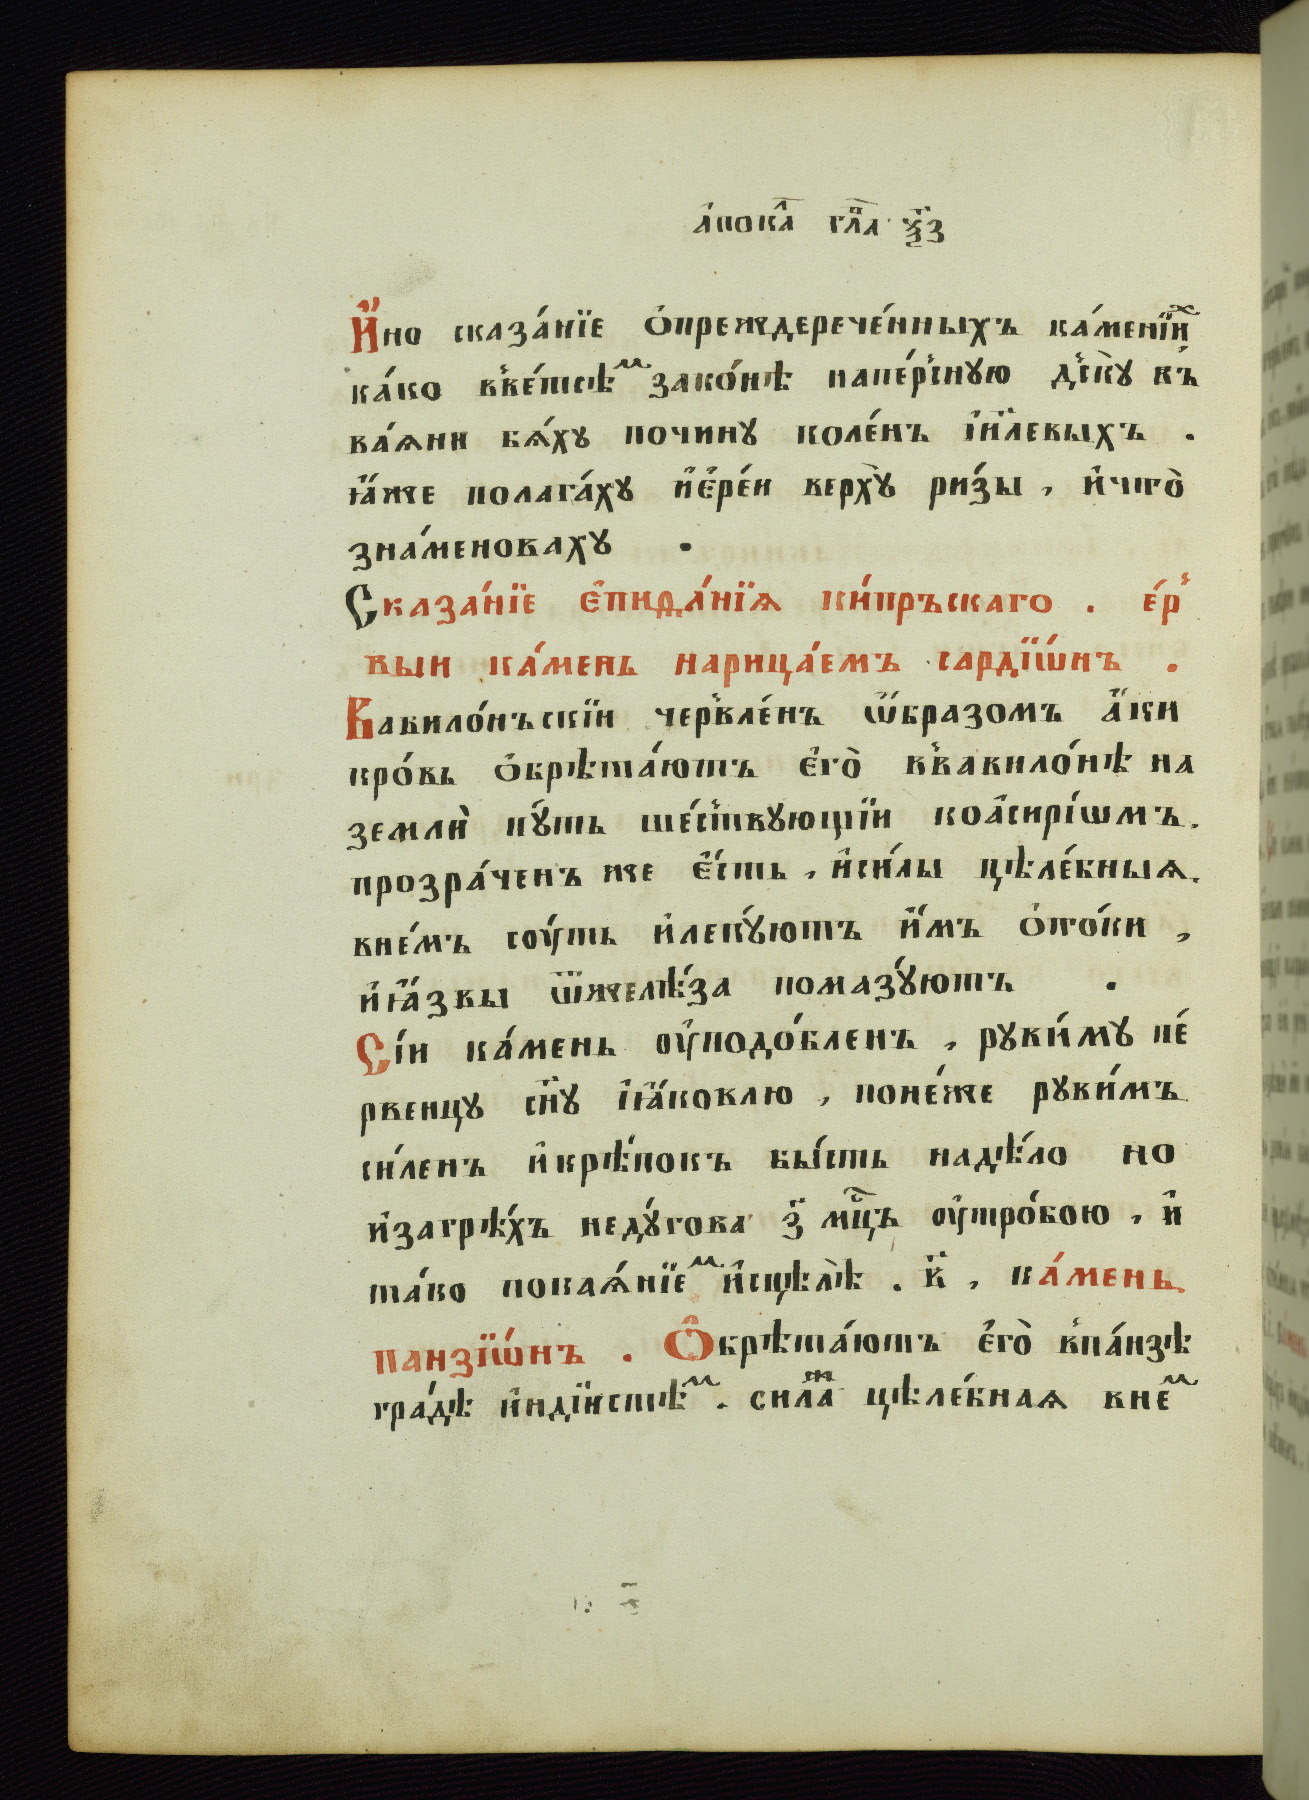 а҆пока́л гл҃а ѯ҃з
И҆но сказа́нїе ѻ҆преждерече́нныхъ ка́менїи
ка́ко вве́тсѣм зако́нѣ напе́рсную дску̀ въ
ва́ѧни бѧ́ху почину коле́нъ і҆и҃левыхъ .
ꙗ҆́же полага́ху и҆є҆ре́и верху̀ ри́зы , и҆чтѡ̀
зна́меноваху .
Сказа́нїе є҆пида́нїѧ ки́пръскаго . е́р
выи ка́мень нарица́емъ сардїѡ́нъ .
Вавило́нъскїи червле́нъ ѡ҆́бразомъ а҆́ки
кро́вь ѻ҆брѣта́ютъ є҆го̀ ввавило́нѣ на
землѝ пу́ть ше́ствующїи коа҆сирі́ѡмъ .
прозра́ченъ же є҆́сть , и҆си́лы цѣле́бныѧ .
вне́мъ сꙋ́ть и҆леку́ютъ и҆́мъ ѻ҆то́ки ,
и҆ꙗ҆́звы ѿжелѣ́за помазу́ютъ .
Сі́и ка́мень ᲂу҆подо́бленъ , руви́му пе́
рвенцу сн҃у і҆ꙗ҆́ковлю , поне́же руви́мъ
си́ленъ и҆крѣ́покъ бы́сть надѣ́ло но
и҆загрѣ́хъ неду́гова з҃ мц҃ъ ᲂу҆тро́бою , и҆
та́ко покаѧ́нїем и҆сцѣлѣ̀ . в҃ , ка́мень
панзїѡ́нъ . Ѻ҆брѣта́ютъ є҆го̀ впа́нзѣ
гра́дѣ и҆ндїистѣм . сила́ж цѣле́бнаѧ вне́м